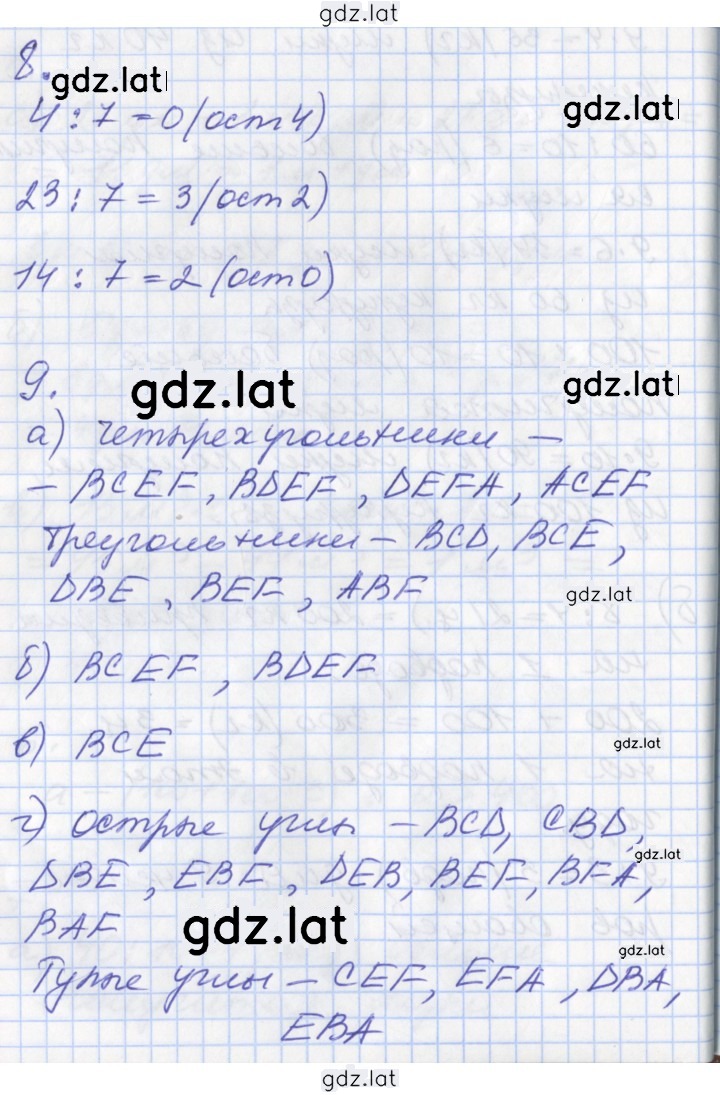 gdz.lat
8.
gdz.lat
4 : 7 = 0 (ост 4)
gdz.lat
23 : 7 = 3 (ост 2)
14 : 7 = 2 (ост 0)
9.
gdz.lat
gdz.lat
а) Четырехугольники –
– BCEF, BDEF, DEFA, ACEF
Треугольники – BCD, BCE,
DBE, BEF, ABF
gdz.lat
б) BCEF, BDEF
в) BCE
gdz.lat
г) острые углы – BCD, CBD,
gdz.lat
DBE, EBF, DEB, BEF, BFA,
BAF
gdz.lat
gdz.lat
Тупые углы – CEF, EFA, DBA,
EBA
gdz.lat